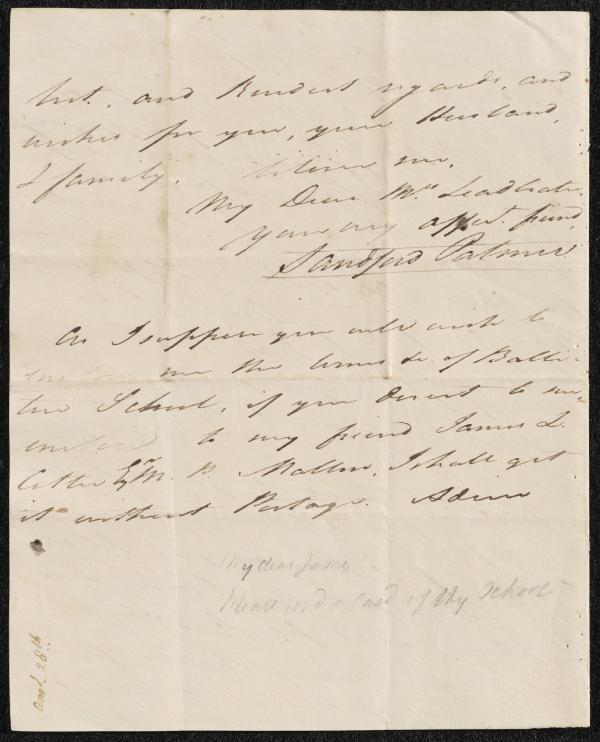 best, and Kindest regards, and
wishes for you, your Husband,
& family. Believe me,
My Dear Mrs. Leadbeater,
your very affect. friend,
Sandford Palmer
As I suppose you will wish to
me the terms &c. of Balli-
tore School, if you direct it
to my friend James L.
Esqr. M. P. Mallow, I shall get
it without Postage. Adieu
My dear James
Please send a card of thy School
ansd. 28th